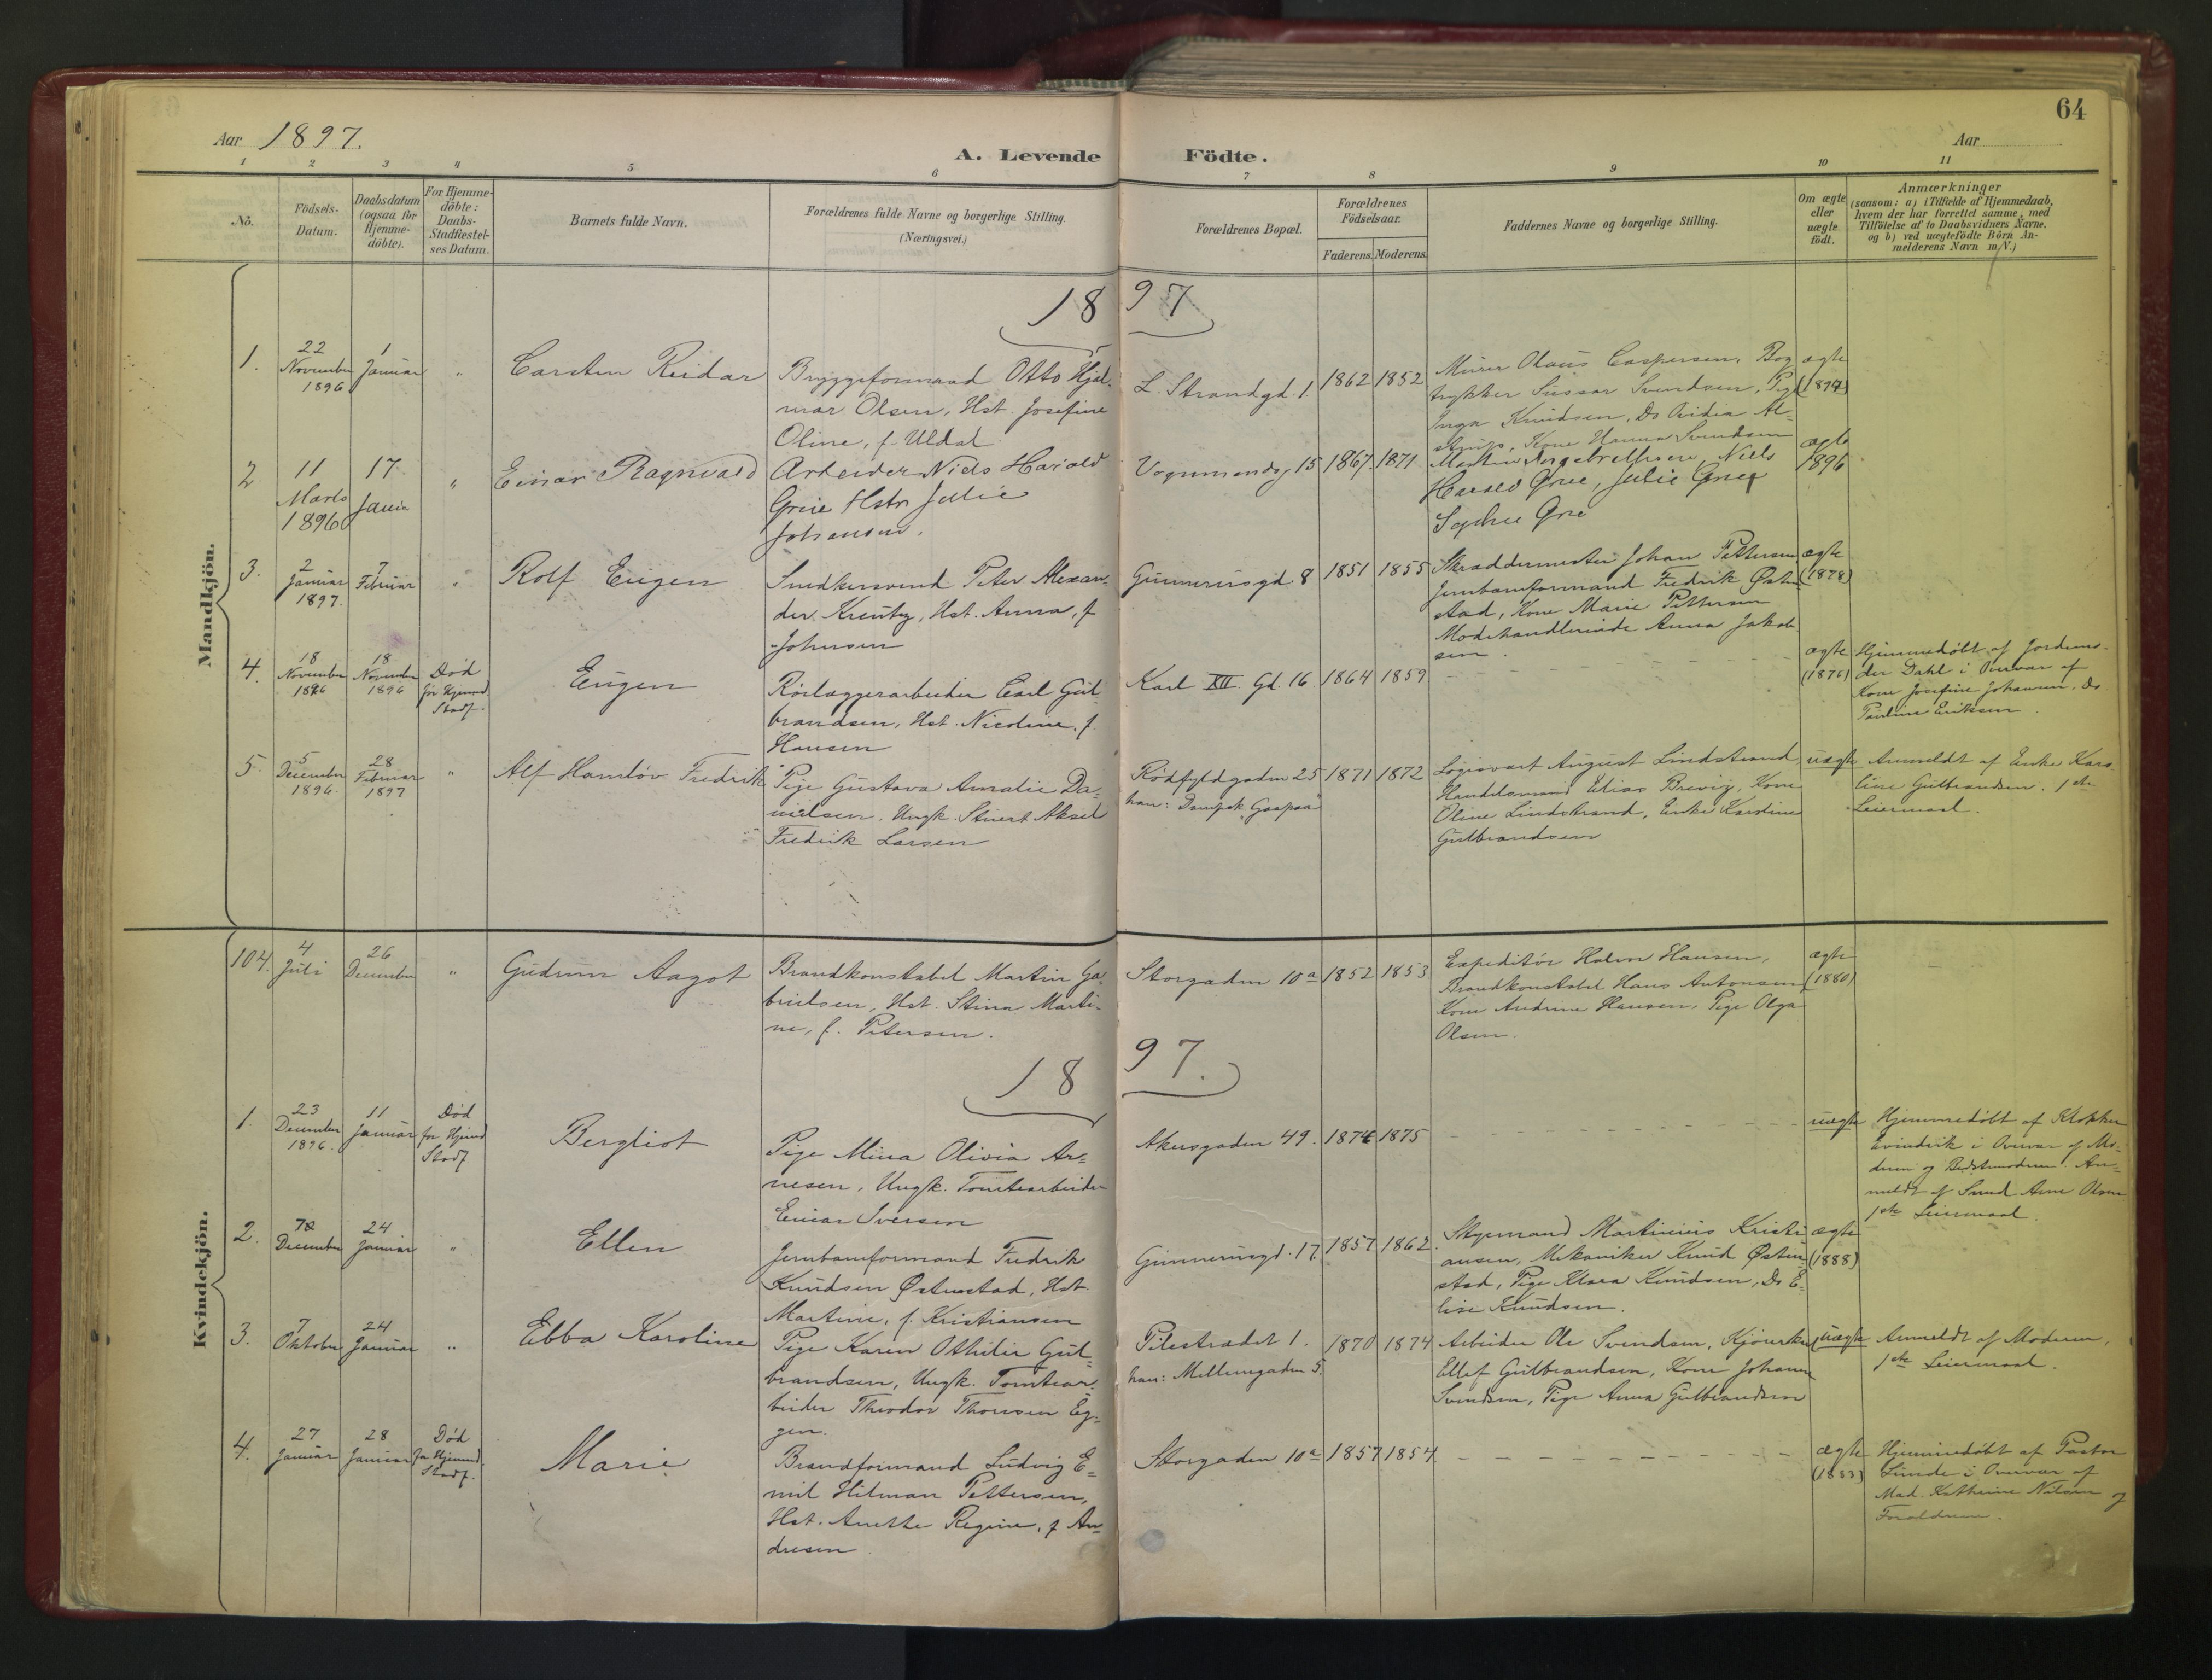 64
Aar 1897.
Aar
A. Levende Födte.
1 2 3 4 5 6 7 8 9 10 11
No.
Födsels-
Datum.
Daabsdatum
(ogsaa for
Hjemme-
döbte).
For Hjemme-
döbte:
Daabs-
Stadfæstel-
ses Datum.
Barnets fulde Navn.
Forældrenes fulde Navne og borgerlige Stilling.
(Næringsvei.)
Forældrenes Bopæl.
Forældrenes
Födselsaar.
Faderens. Moderens.
Faddernes Navne og borgerlige Stilling.
Om ægte
eller
uægte
födt.
Anmærkninger
(saasom: a) i Tilfælde af Hjemmedaab,
hvem der har forrettet samme, med
Tilföielse af to Daabsvidners Navne,
og b) ved uægtefödte Börn An-
melderens Navn m.V.)
Mandkjön.
1897
1.
22
November
1896
1
Januar
"
Carsten Reidar
Bryggeformand Otto Hjal-
mar Olsen, Hst. Josefine
Oline, f. Uldal
L. Strandgd. 1.
1862
1852
Murer Olaus Caspersen, Bog
trykker Svendsen, Pige
Inga Knudsen, Do Ovidia Al-
Kone Hanna Svendsen
ægte
2.
11
Marts
1896
17
Janua
"
Einar Ragnvald
Arbeider Niels Harald
Grue Hstr Julie
Johansen.
Vognmandsg 15
1867
1871
Martin Niels
Harald Grue, Julie Grue
Sophie Grue
ægte
1896
3.
2
Januar
1897.
7
Februar
"
Rolf Eugen
Snedkersvend Peter Alexan-
der Kreutz, Hst. Anna, f
Johnsen
Gunnerusgd. 8
1851
1855
Skræddermester Johan Pettersen
Jernbaneformand Fredrik Østen-
stad, Kone Marie Pettersen
Modehandlerinde Anna Jakob-
sen.
ægte
(1878)
4.
18
November
1896
18
November
1896
Död
før Hjemmed
Stadf.
Eugen
Rørlæggerarbeider Carl Gul-
brandsen, Hst. Nicoline, f.
Hansen
Karl XII. Gd. 16
1864
1859
ægte
(1876)
Hjemmedøbt af Jordemo-
der Dahl i Overvær af
Kone Josefine Johansen, Do
Pauline Eriksen.
5.
5
December
1896.
28
Februar
1897
"
Alf Hamlov Fredrik
Pige Gustava Amalie Da-
nielsen. Ungk. Stuert Aksel
Fredrik Larsen
Rødfyldgaden 25
han: Dampsk. Gaapaa
1871
1872
Logisvært August Lindstrand,
Handelsmand Elias Brevig, Kone
Oline Lindstrand, Enke Karoline
Gulbrandsen
uægte
Anmeldt af Enke Karo-
line Gulbrandsen. 1ste
Leiermaal.
Kvindekjön.
104.
4
Juli
26
December
"
Gudrun Aagot
Brandkonstabel Martin Ga-
brielsen, Hst. Stina Marti-
ne, f. Petersen.
Storgaden 10a
1852
1853
Expeditör Halvor Hansen,
Brandkonstabel Hans Antonsen
Kone Andrine Hansen, Pige Olga
Olsen.
ægte
(1880)
1897.
1.
23
December
1896.
11
Januar
Död
før Hjemmed
Stadf
Bergliot
Pige Mina Olivia Ar-
nesen, Ungk. Tomtearbeider
Einar Iversen
Akersgaden 49.
1874
1875
uægte
Hjemmedøbt af Klokker
Evindvik i Overvær af Mo-
deren og Bedstemoderen. An-
meldt af Smed Arne Olsen
1ste Leiermaal.
2.
December
24
Januar
"
Ellen
Jernbaneformand Fredrik
Knudsen Østenstad, Hst.
Martine, f. Kristiansen
Gunnerusgd. 17.
1857
1862.
Styrmand Martinius Kristi
ansen, Mekaniker Knud Østen-
stad, Pige Klara Knudsen, Do E-
lise Knudsen.
ægte
(1888)
3.
7
Oktober
24
Januar
"
Ebba Karoline
Pige Karen Othilie Gul-
brandsen, Ungk. Tomtear-
beider Theodor Thoresen Eg-
gen.
Pilestrædet 1.
han: Mellemgaden 5.
1870
1874
Arbeider Ole Svendsen, Kjørerkar
Ellef Gulbrandsen, Kone Johanne
Svendsen, Pige Anna Gulbrandsen
uægte
Anmeldt af Moderen,
1ste Leiermaal.
4.
27
Januar
28
Januar
Død
før Hjemmed.
Stadf.
Marie
Brandformand Ludvig E-
mil Hilman Pettersen,
Hst. Anette Regine, f An-
dresen.
Storgaden 10a
1857
1854
ægte
(1883)
Hjemmedøbt af Pastor
Linde i Overvær af
Mad. Kathrine Nilsen og
Forældrene.